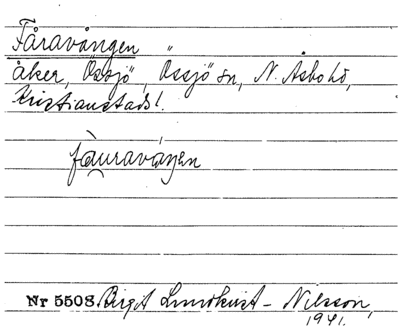 Fåravången
åker, Össjö, Össjö sn, N. Åsbo hd,
Kristianstads l.
fåuravången
Nr 5508 Birgit Lundkvist - Nilsson,
1941.